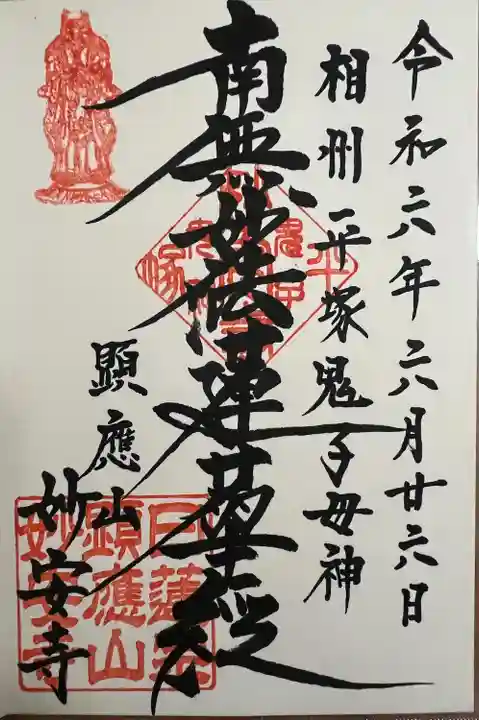 令和六年六月廿六日
相州平塚鬼子母神
南無妙法蓮華経
顕應山
妙安寺
日蓮宗
顕應山
妙安寺